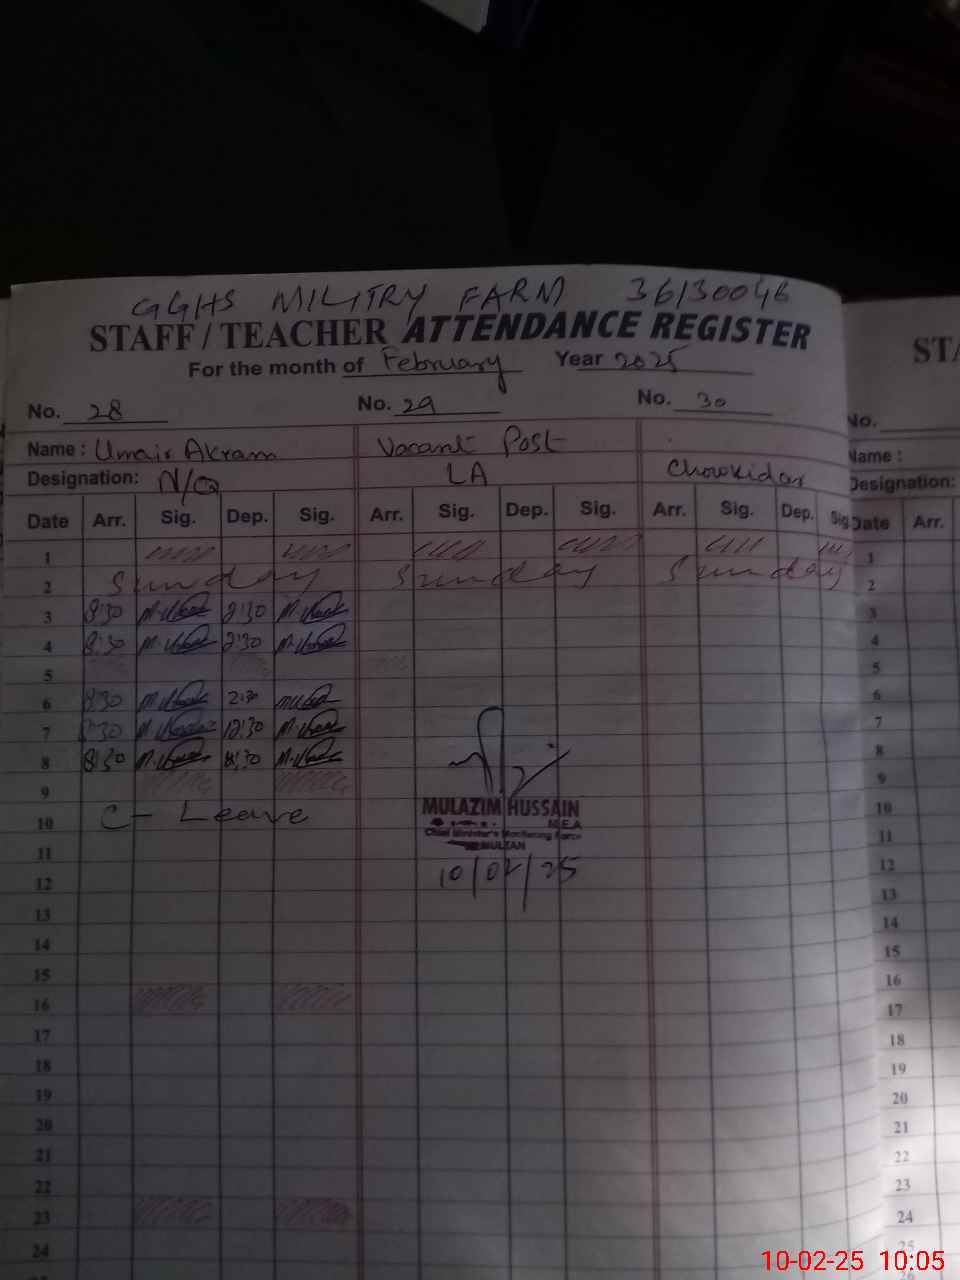 GGHS MILITRY FARM 36130046
STAFF / TEACHER ATTENDANCE REGISTER
For the month of February Year 2025
No. 28 No. 29 No. 30
Name : Umair Akram Vacant Post
Designation: N/Q LA Chowkidar
Date Arr. Sig. Dep. Sig. Arr. Sig. Dep. Sig. Arr. Sig. Dep. Sig.
1
2 Sunday Sunday Sunday
3 8:30 2:30
4 8:30 2:30
5
6 8:30 2:30
7 8:30 12:30
8 8:30
9
10 C- Leave
MULAZIM HUSSAIN
M.E.A
Chief Minister's Monitoring Force
MULTAN
10/02/25
11
12
13
14
15
16
17
18
19
20
21
22
23
24
ST
No.
Name :
Designation:
Date Arr.
1
2
3
4
5
6
7
8
9
10
11
12
13
14
15
16
17
18
19
20
21
22
23
24
25
26
10-02-25 10:05